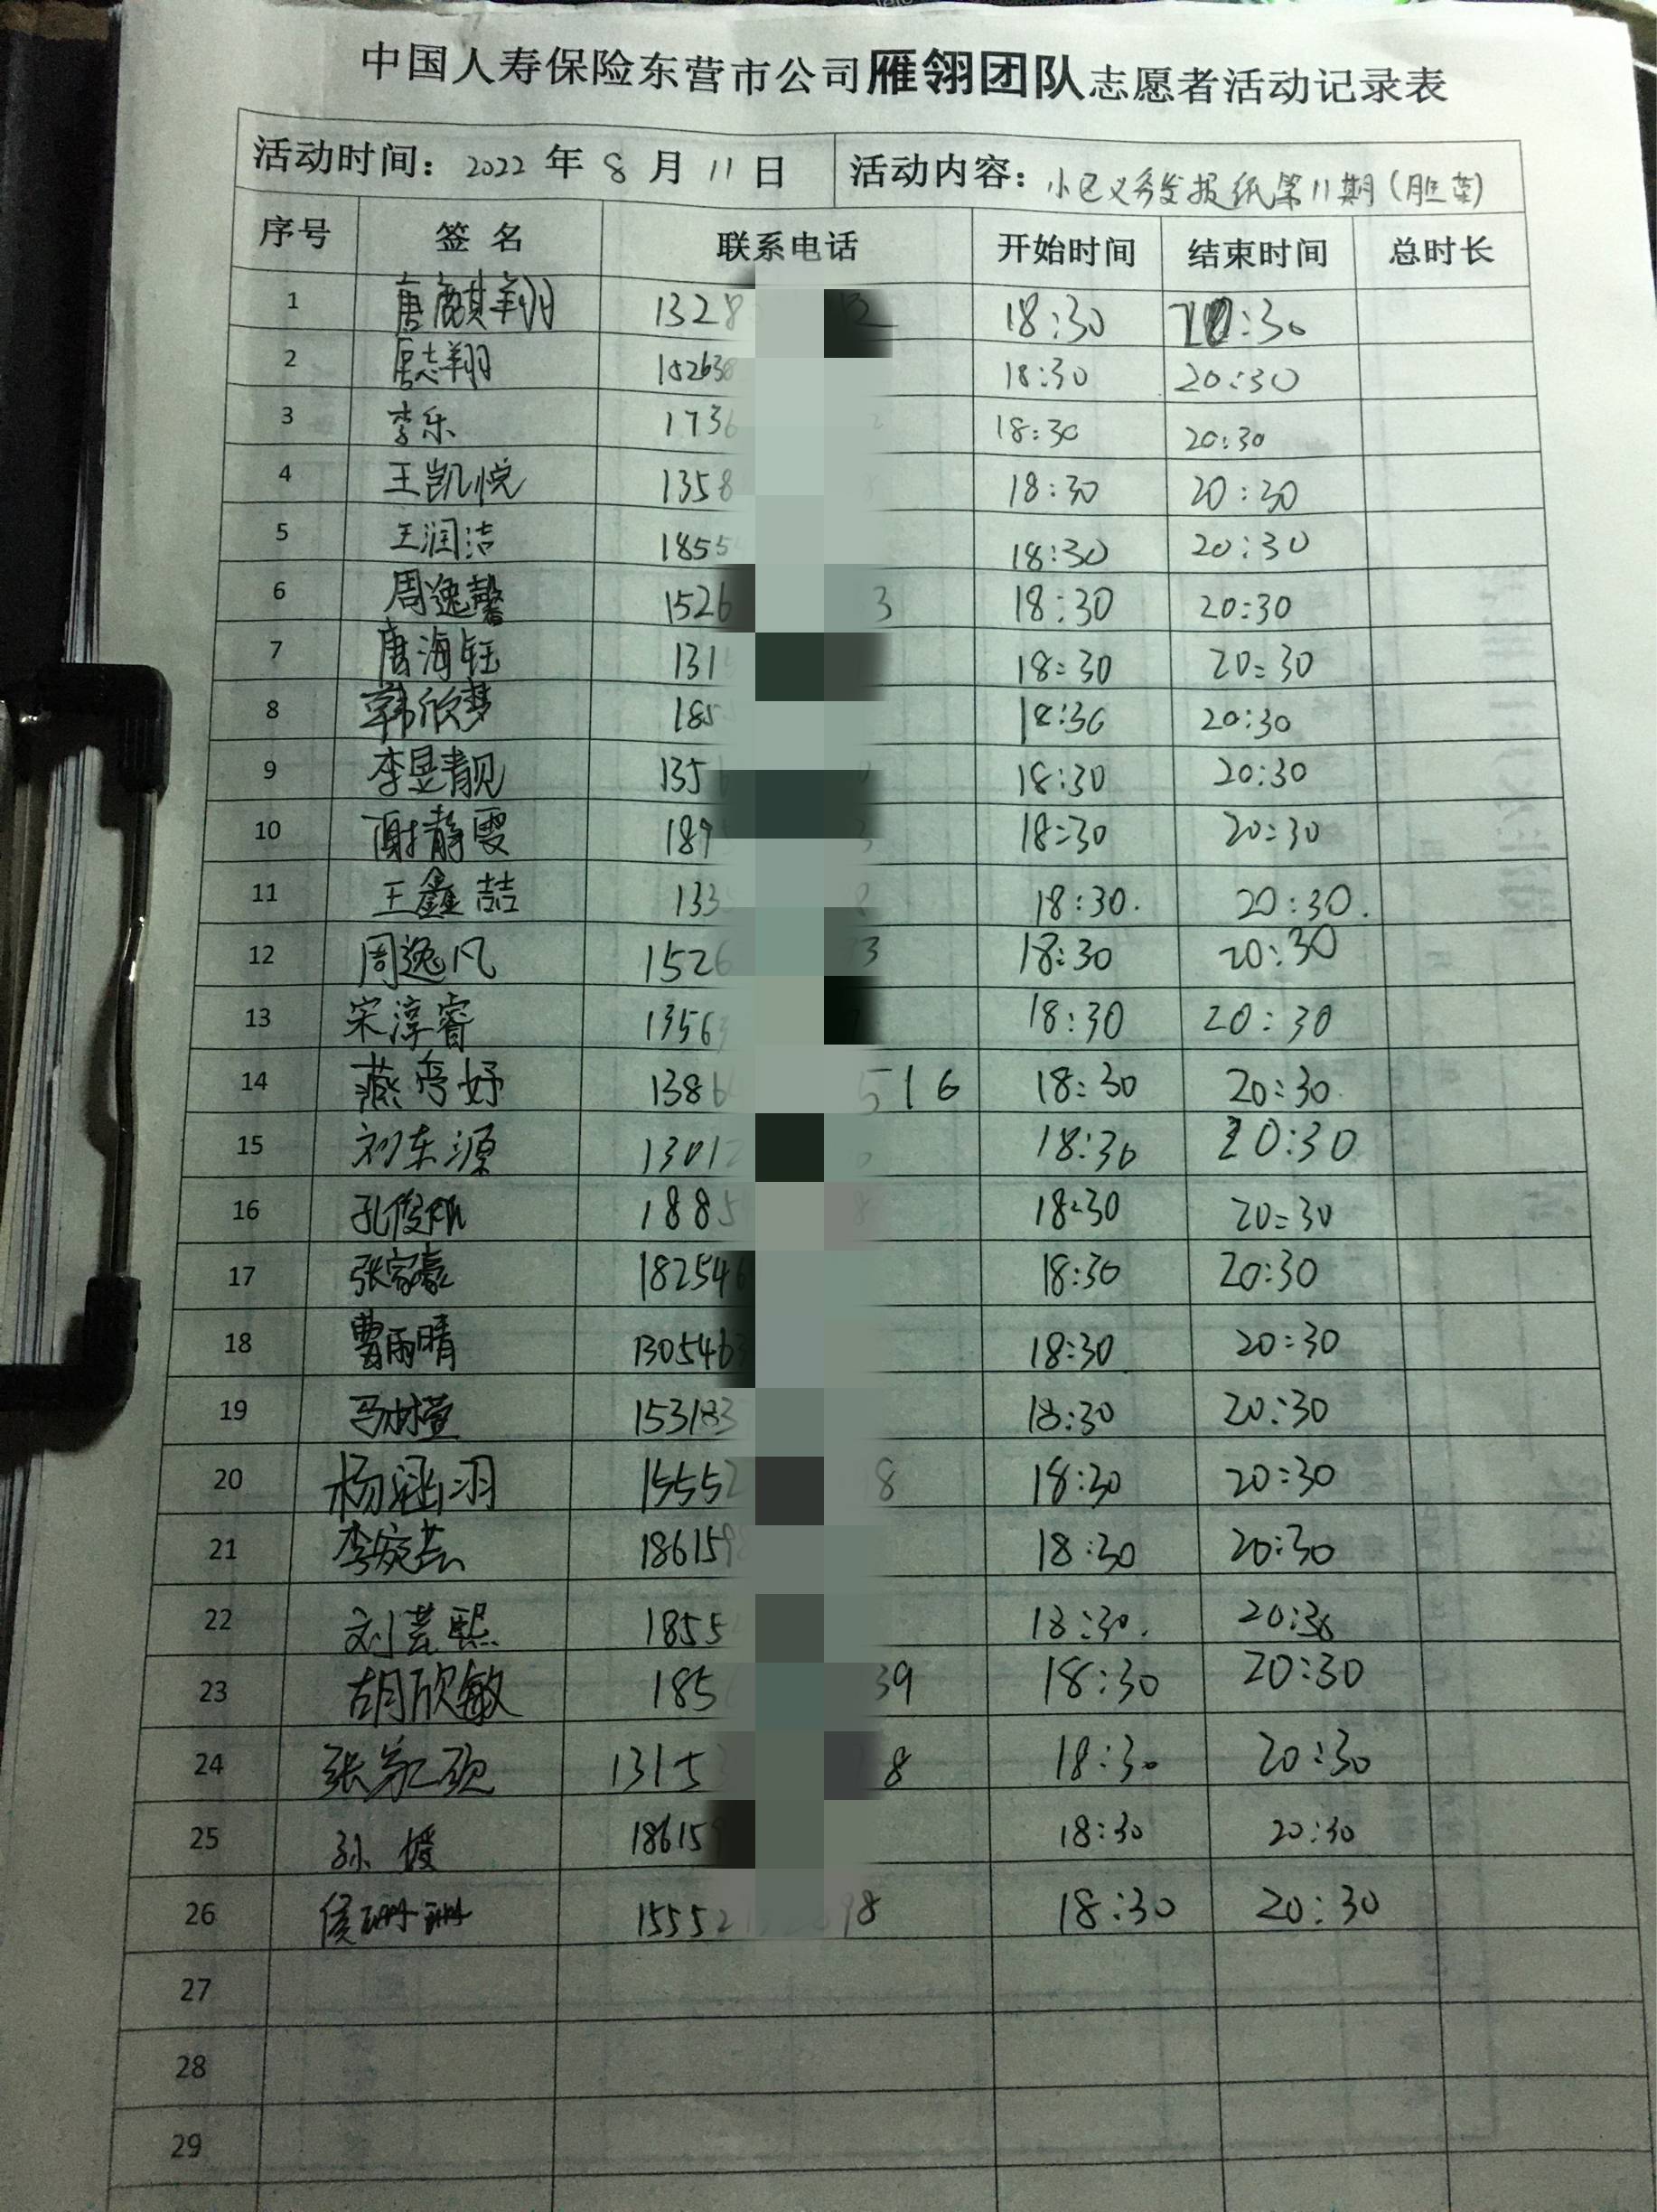 中国人寿保险东营市公司雁翎团队志愿者活动记录表
活动时间：2022年8月11日 活动内容：小区义务发报纸第11期(胜苑)
序号 签名 联系电话 开始时间 结束时间 总时长
1 唐麒翔 1328 18:30 20:30
2 唐志翔 15263 18:30 20:30
3 李乐 173 18:30 20:30
4 王凯悦 1358 18:30 20:30
5 王润洁 1855 18:30 20:30
6 周逸馨 1526 3 18:30 20:30
7 唐海钰 131 18:30 20:30
8 韩欣梦 185 18:30 20:30
9 李昱靓 135 18:30 20:30
10 谢静雯 189 18:30 20:30
11 王鑫喆 133 18:30. 20:30.
12 周逸凡 1526 3 18:30 20:30
13 宋淳睿 1356 18:30 20:30
14 燕 妤 1386 516 18:30 20:30
15 刘东源 1301 18:30 20:30
16 孔俊 1885 18:30 20:30
17 张家豪 18254 18:30 20:30
18 曹雨晴 130546 18:30 20:30
19 马树萱 153183 18:30 20:30
20 杨涵羽 1555 8 18:30 20:30
21 李宛芸 18615 18:30 20:30
22 刘芸熙 1855 18:30. 20:30
23 胡欣敏 185 39 18:30 20:30
24 张 硕 1315 8 18:30 20:30
25 孙媛 18615 18:30 20:30
26 侯珊珊 15552 98 18:30 20:30
27
28
29